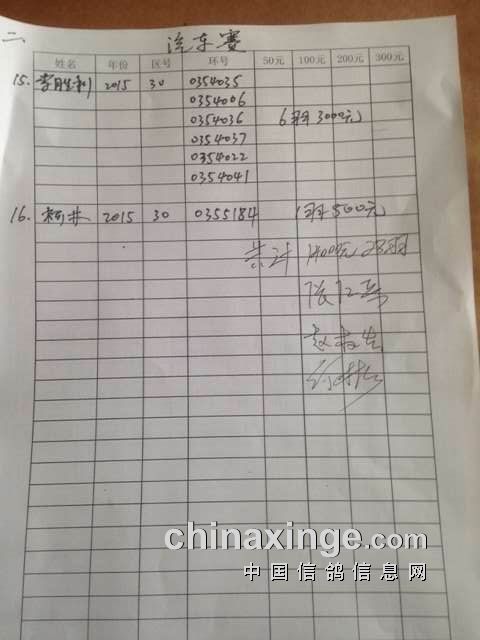 二
汽车赛
姓名 年份 区号 环号 50元 100元 200元 300元
15. 李胜利 2015 30 0354035
0354006
0354036 6羽 3000元
0354037
0354022
0354041
16. 2015 30 0355184 1羽 500元
共计 14000元 28羽
chinaxinge.com
中国信鸽信息网